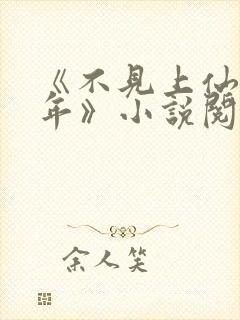 《不見上仙
年》小說閱
余人笑